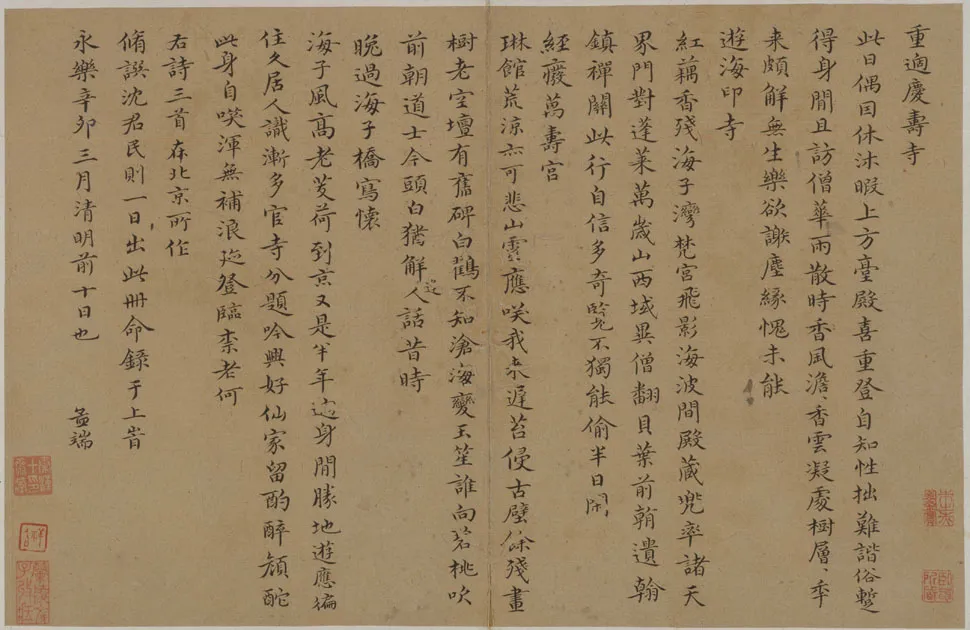 重適慶壽寺
此日偶因休沐暇上方臺殿喜重登自知性拙難諧俗蹔
得身閒且訪僧華雨散時香風澹、香雲凝處樹層、年
来頗解無生樂欲謝塵緣愧未能
遊海印寺
紅藕香殘海子灣梵宮飛影海波間殿藏兜率諸天
界門對蓬莱萬歲山西域異僧翻貝葉前朝遺翰
鎮禪關此行自信多奇覽不獨能偷半日閒
經癈萬壽宮
琳館荒涼亦可悲山靈應咲我来遲苔侵古壁餘殘畫
樹老空壇有舊碑白鶴不知滄海變玉笙誰向碧桃吹
前朝道士今頭白猶解逢人話昔時
晚過海子橋寫懷
海子風高老芰荷到京又是半年過身閒勝地遊應徧
住久居人識漸多官寺分題吟興好仙家留酌醉顔酡
此身自咲渾無補浪跡登臨柰老何
右詩三首在北京所作
脩譔沈君民則一日出此冊命錄于上旹
永樂辛卯三月清明前十日也 孟端